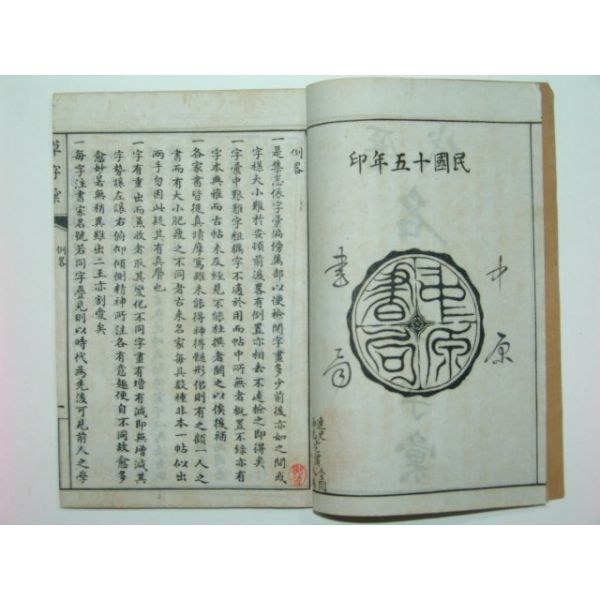 民國十五年印
中原
書局
中原書局
例畧
一是集悉依字彙偏傍屬部以便檢閱字畫多少前後亦如之間或
字樣大小難於安頓前後畧有倒置亦相去不遠檢之即得矣
一字彙中艱難字粗鄙字不適於用而帖中所無者概置不錄亦有
字本典雅而古帖未及經見不能杜撰者闕之以俟後補
一各家書皆挺真蹟摩寫雖未能得神得髓形似則有之顧一人之
書而有大小肥瘦之不同者古來名家每具數種非本一帖似出
兩手勿因此疑其有真贋也
一字有重出而兼收者取其變化不同字畫有增有減即無增減其
字勢孫左讓右俯仰傾側精神所注各有意趣便自不同故愈多
愈妙若無稍異雖出二王亦割愛矣
一每字注書家名號若同字疊見則以時代為先後可見前人之學
草字彙
例畧
一